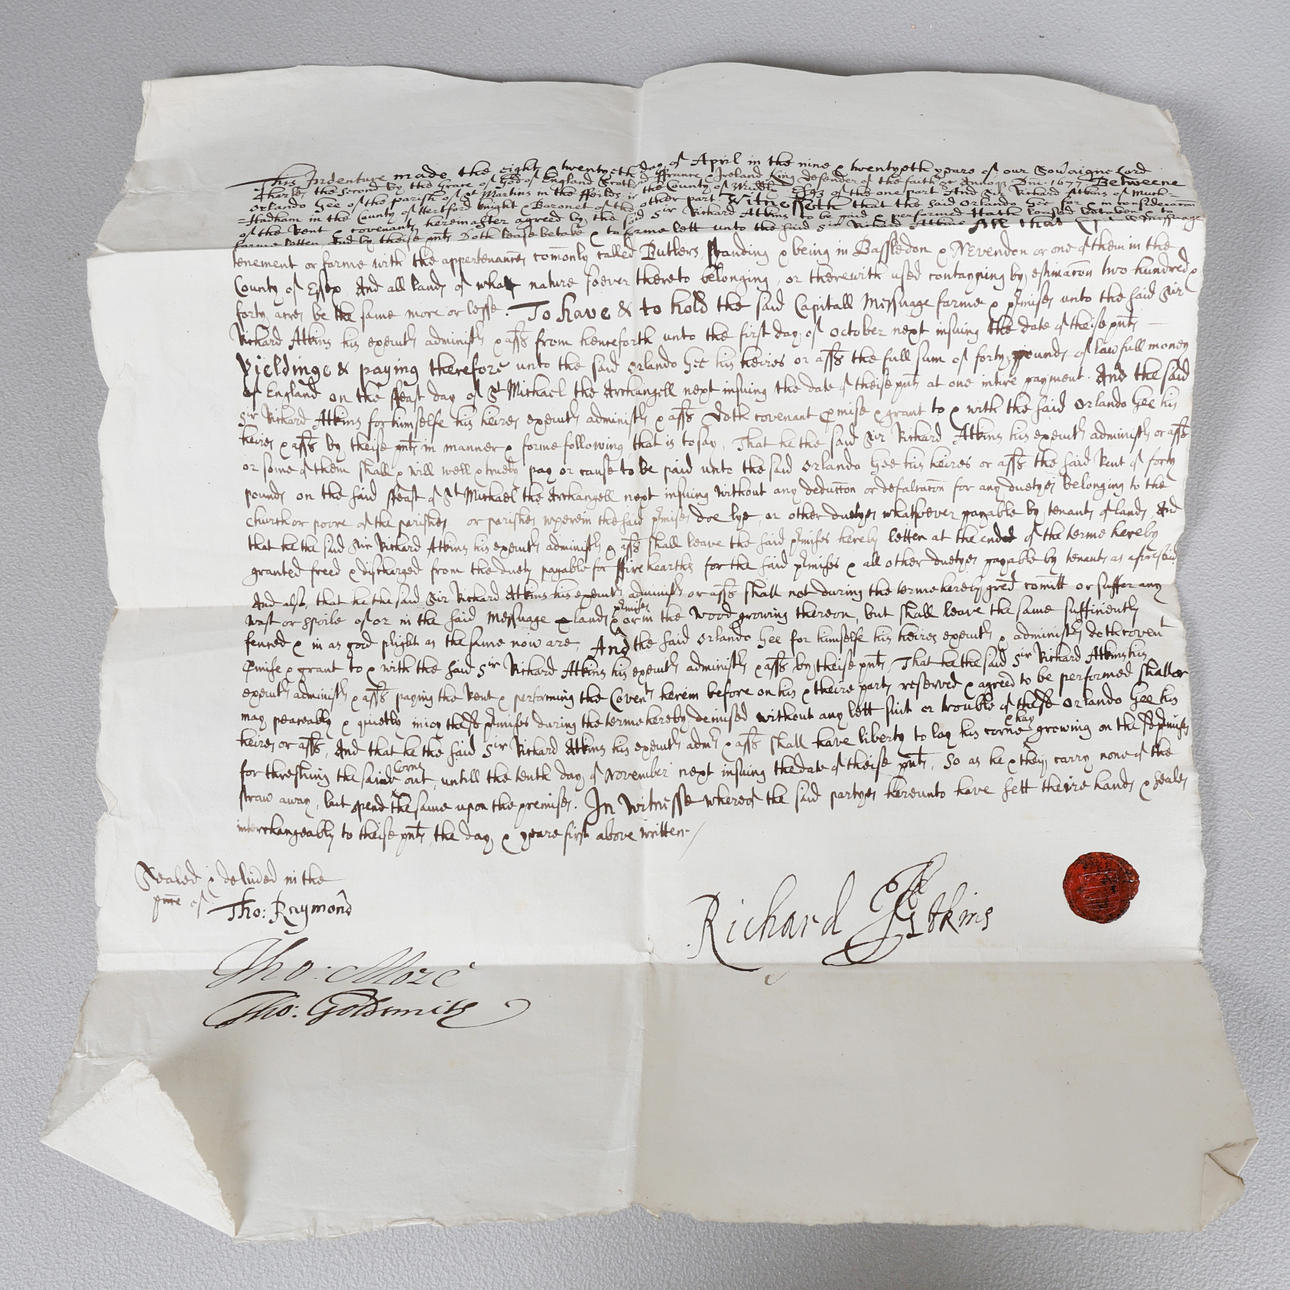 This Indenture made the eight & twentyeth day of April in the nine & twentyeth yeare of our Sovaigne Lord
Charles the Second by the Grace of God of England Scotland ffrance & Ireland King defender of the faith &c Annoq Dni 167 Betweene
Orlando Gee of the parish of St Martins in the ffeilds in the County of Midd Esqr of the one part And Sr Richard Atkins of Much
Hadham in the County of Hertford knight & Baronet of the other part Witnesseth that the said Orlando Gee for & in consideracon
of the Rent & covenants hereinafter agreed by the said Sir Richard Atkins to be paid & performed Hath
farme letten And by theise pnts Doth & to farme lett unto the said Sir Richard Atkins All that Messuage
tenement or farme with the appertenances comonly called Butlers standing & being in Bassledon & Nevendon or one of them in the
County of Essex And all lands of what nature soever thereto belonging, or therewith used contayning by estimacon two hundred &
forty acres be the same more or lesse To have & to hold the said Capitall Messuage farme & pmises unto the said Sir
Richard Atkins his execut administ & asss from henceforth unto the first day of October next insuing the date of theise pnts
Yieldinge & paying therefore unto the said Orlando Gee his heires or asss the full sum of forty pounds of lawfull money
of England on the ffeast day of St Michael the Archangell next insuing the date of theise pnts at one intire payment. And the said
Sir Richard Atkins for himselfe his heires execut administ & asss doth covenant pmise & grant to & with the said Orlando Gee his
heires & asss by theise pnts in manner & forme following that is to say, That he the said Sir Richard Atkins his execut administ or asss
or some of them shall & will well & truely pay or cause to be paid unto the said Orlando Gee his heires or asss the said Rent of forty
pounds on the said ffeast of St Michael the Archangell next insuing without any deduccon or defalcacon for any duetyes belonging to the
church or poore of the parishes or parishes wherein the said pmises doe lye, or other duetyes whatsoever payable by tenants of lands And
that he the said Sir Richard Atkins his execut administ & asss shall leave the said pmises hereby letten at the end of the terme hereby
granted freed & discharged from the duety payable for ffire hearths for the said pmises & all other duetyes payable by tenants as aforesaid
And also, that he the said Sir Richard Atkins his execut administ or asss shall not during the terme hereby gred comitt or suffer any
wast or spoile of or in the said Messuage & lands pmises or in the wood growing thereon, but shall leave the same suffiently
fenced & in as good plight as the same now are, And the said Orlando Gee for himselfe his heires execut & administ doth covent
pmise & grant to & with the said Sir Richard Atkins his execut administ & asss by theise pnts That he the said Sir Richard Atkins his
execut administ & asss paying the Rent & performing the Coven herein before on his & theire parts reserved & agreed to be performed shall or
may peaceably & quietly injoy the pmises during the terme hereby demised without any lett suit or trouble of the Orlando Gee his
heires or asss, And that he the said Sir Richard Atkins his execut adm & asss shall have liberty to lay his corne & hay growing on the pmises
for threshing the said Corne out, untill the tenth day of November next insuing the date of theise pnts, So as he & they carry none of the
straw away, but spend the same upon the premises. In witnesse whereof the said partyes hereunto have sett theire hands & seales
interchangeably to theise pnts the day & yeare first above written
Sealed & delivered in the
pnce of Tho: Raymond
Tho: More
Tho: Goldsmith
Richard Atkins